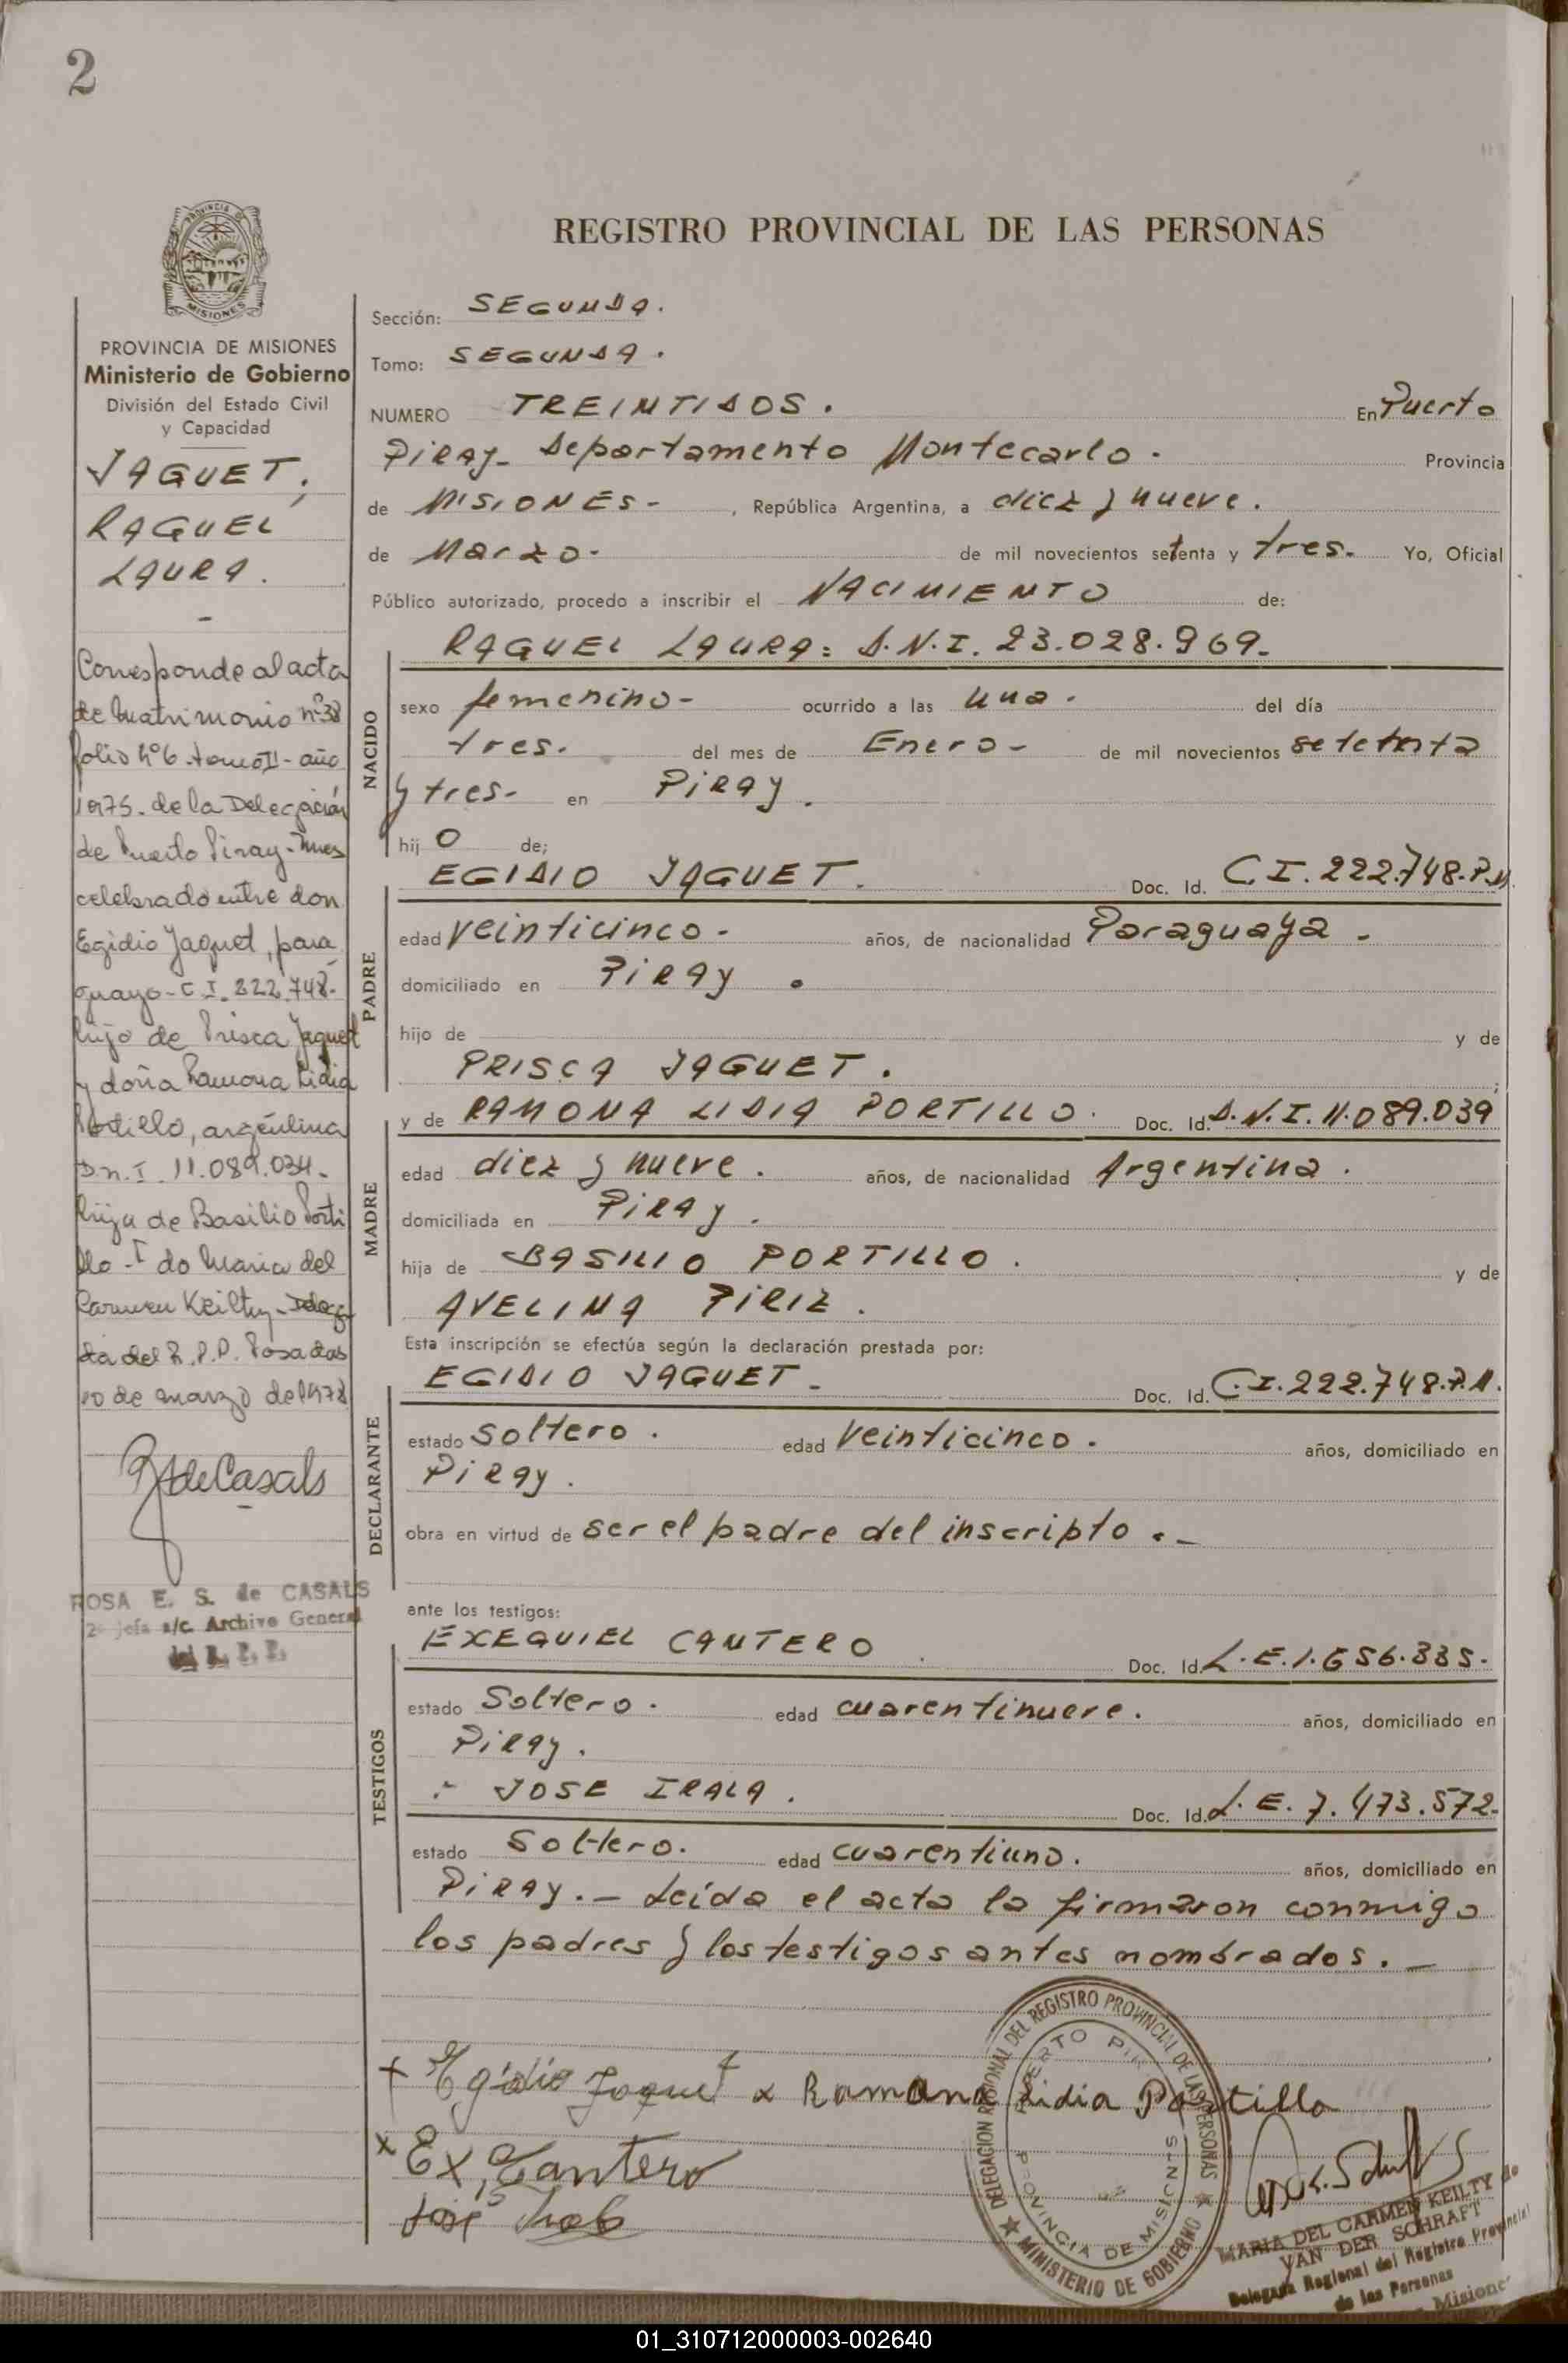 2
REGISTRO PROVINCIAL DE LAS PERSONAS
PROVINCIA DE MISIONES
Ministerio de Gobierno
División del Estado Civil
y Capacidad
JAQUET,
RAQUEL
LAURA.
Corresponde al acta
de Matrimonio nº 38
folio nº 6 - tomo II - año
1975 - de la Delegación
de Puerto Piray - Mnes
celebrado entre don
Egidio Jaquet, para
guayo - C.I. 222.748 -
hijo de Prisca Jaquet
y doña Ramona Lidia
Portillo, argentina
D.n.I 11.089.034 -
hija de Basilio Porti
llo - Fdo Maria del
Carmen Keilty -
da del R.P.P. Posadas
10 de marzo del 1978
R S de Casals
ROSA E. S. de CASALS
2º jefa a/c. Archivo General
del R. P. P.
Sección: SEGUNDA.
Tomo: SEGUNDA.
NUMERO TREINTIDOS. En Puerto
Piray - Departamento Montecarlo. Provincia
de MISIONES - , República Argentina, a diez y nueve.
de Marzo - de mil novecientos setenta y tres. Yo, Oficial
Público autorizado, procedo a inscribir el NACIMIENTO de:
RAQUEL LAURA: D.N.I. 23.028.969.-
NACIDO
sexo femenino - ocurrido a las una. del día
tres. del mes de Enero - de mil novecientos setetenta
y tres - en Piray.
hij o de;
EGIDIO JAQUET. Doc. Id. C.I. 222.748. P.M.
PADRE
edad veinticinco - años, de nacionalidad Paraguaya -
domiciliado en Piray.
hijo de y de
PRISCA JAQUET. ;
y de RAMONA LIDIA PORTILLO. Doc. Id. D.N.I. 11.089.039
MADRE
edad diez y nueve. años, de nacionalidad Argentina.
domiciliada en Piray.
hija de BASILIO PORTILLO. y de
AVELINA PIRIZ.
Esta inscripción se efectúa según la declaración prestada por:
EGIDIO JAQUET - Doc. Id. C.I. 222.748. P.M.
DECLARANTE
estado soltero. edad veinticinco. años, domiciliado en
Piray.
obra en virtud de ser el padre del inscripto. -
ante los testigos:
EXEQUIEL CANTERO Doc. Id. L.E. 1.656.335.
TESTIGOS
estado Soltero. edad cuarentinueve. años, domiciliado en
Piray.
: JOSE IRALA. Doc. Id. L.E. 7.473.572-
estado Soltero. edad cuarentiuno. años, domiciliado en
Piray. - Leída el acta la firmaron conmigo
los padres y los testigos antes nombrados. -
x Egidio Jaquet x Ramona Lidia Portillo
x Ex, Cantero
José Irala
DELEGACION REGIONAL DEL REGISTRO PROVINCIAL DE LAS PERSONAS
MINISTERIO DE GOBIERNO
PUERTO PIRAY
PROVINCIA DE MISIONES
MARIA DEL CARMEN KEILTY de
VAN DER SCHRAFT
Delegada Regional del Registro Provincial
de las Personas
Misiones
01_310712000003-002640